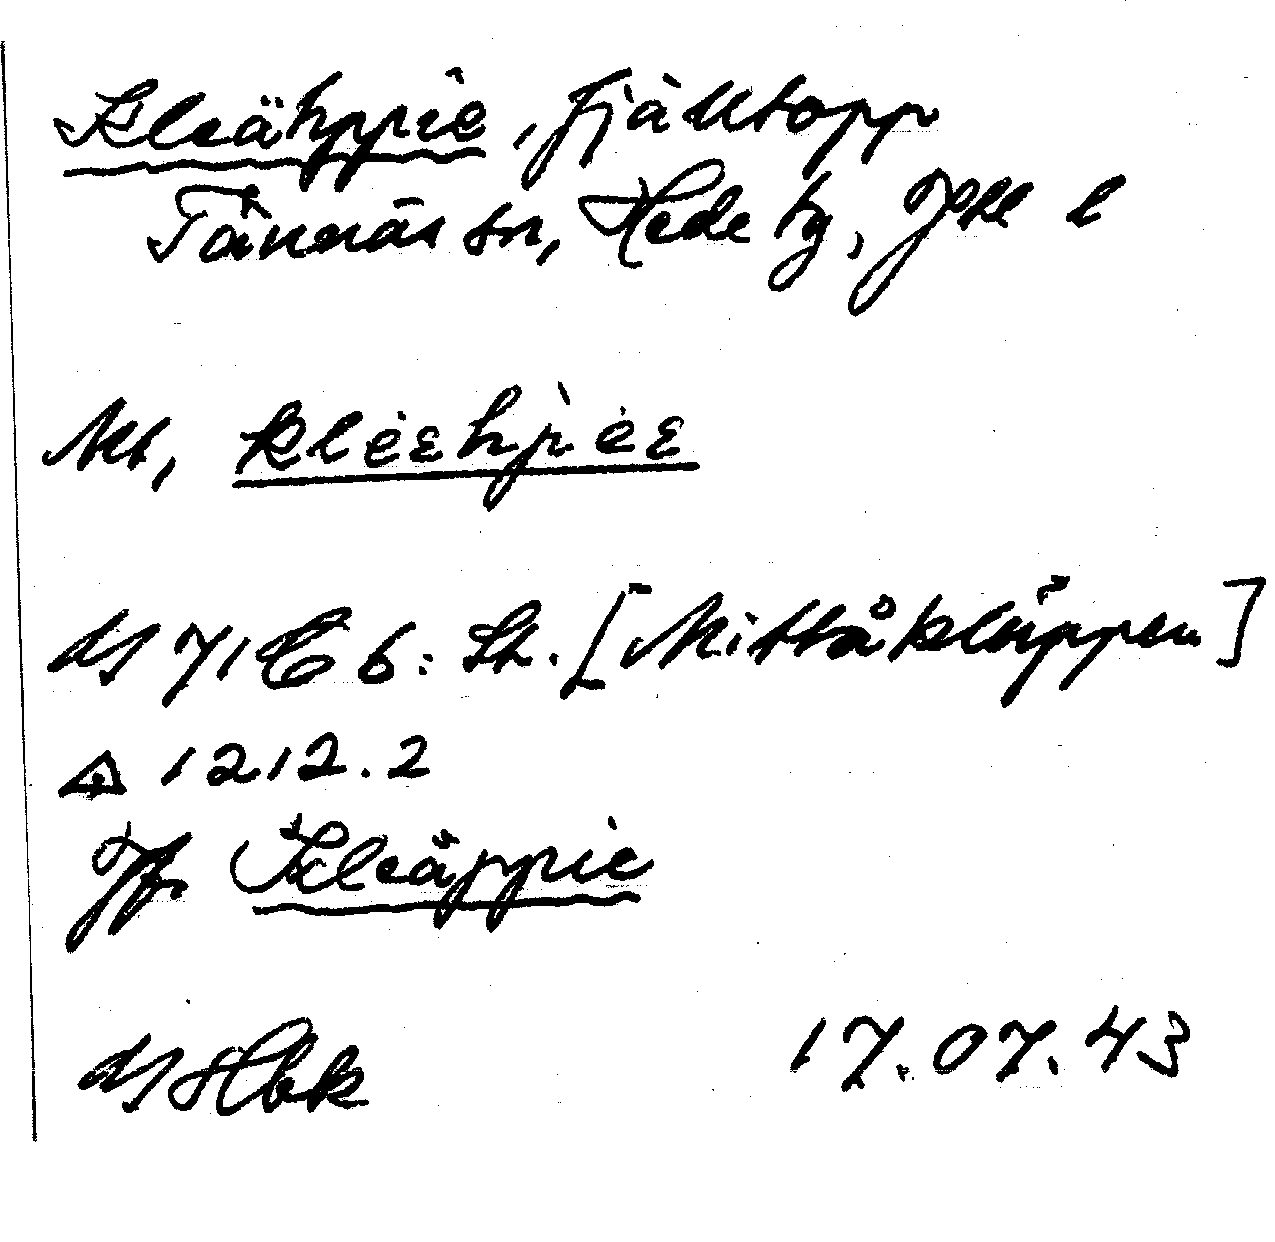 Kleähppie, fjälltopp
Tännäs sn, Hede tg, Jtl l
Mt, kleɛhpeɛ
71 C 6: St. [Mittåkläppen]
1212.2
Jf. Kleäppie
Hbk 17.07.43